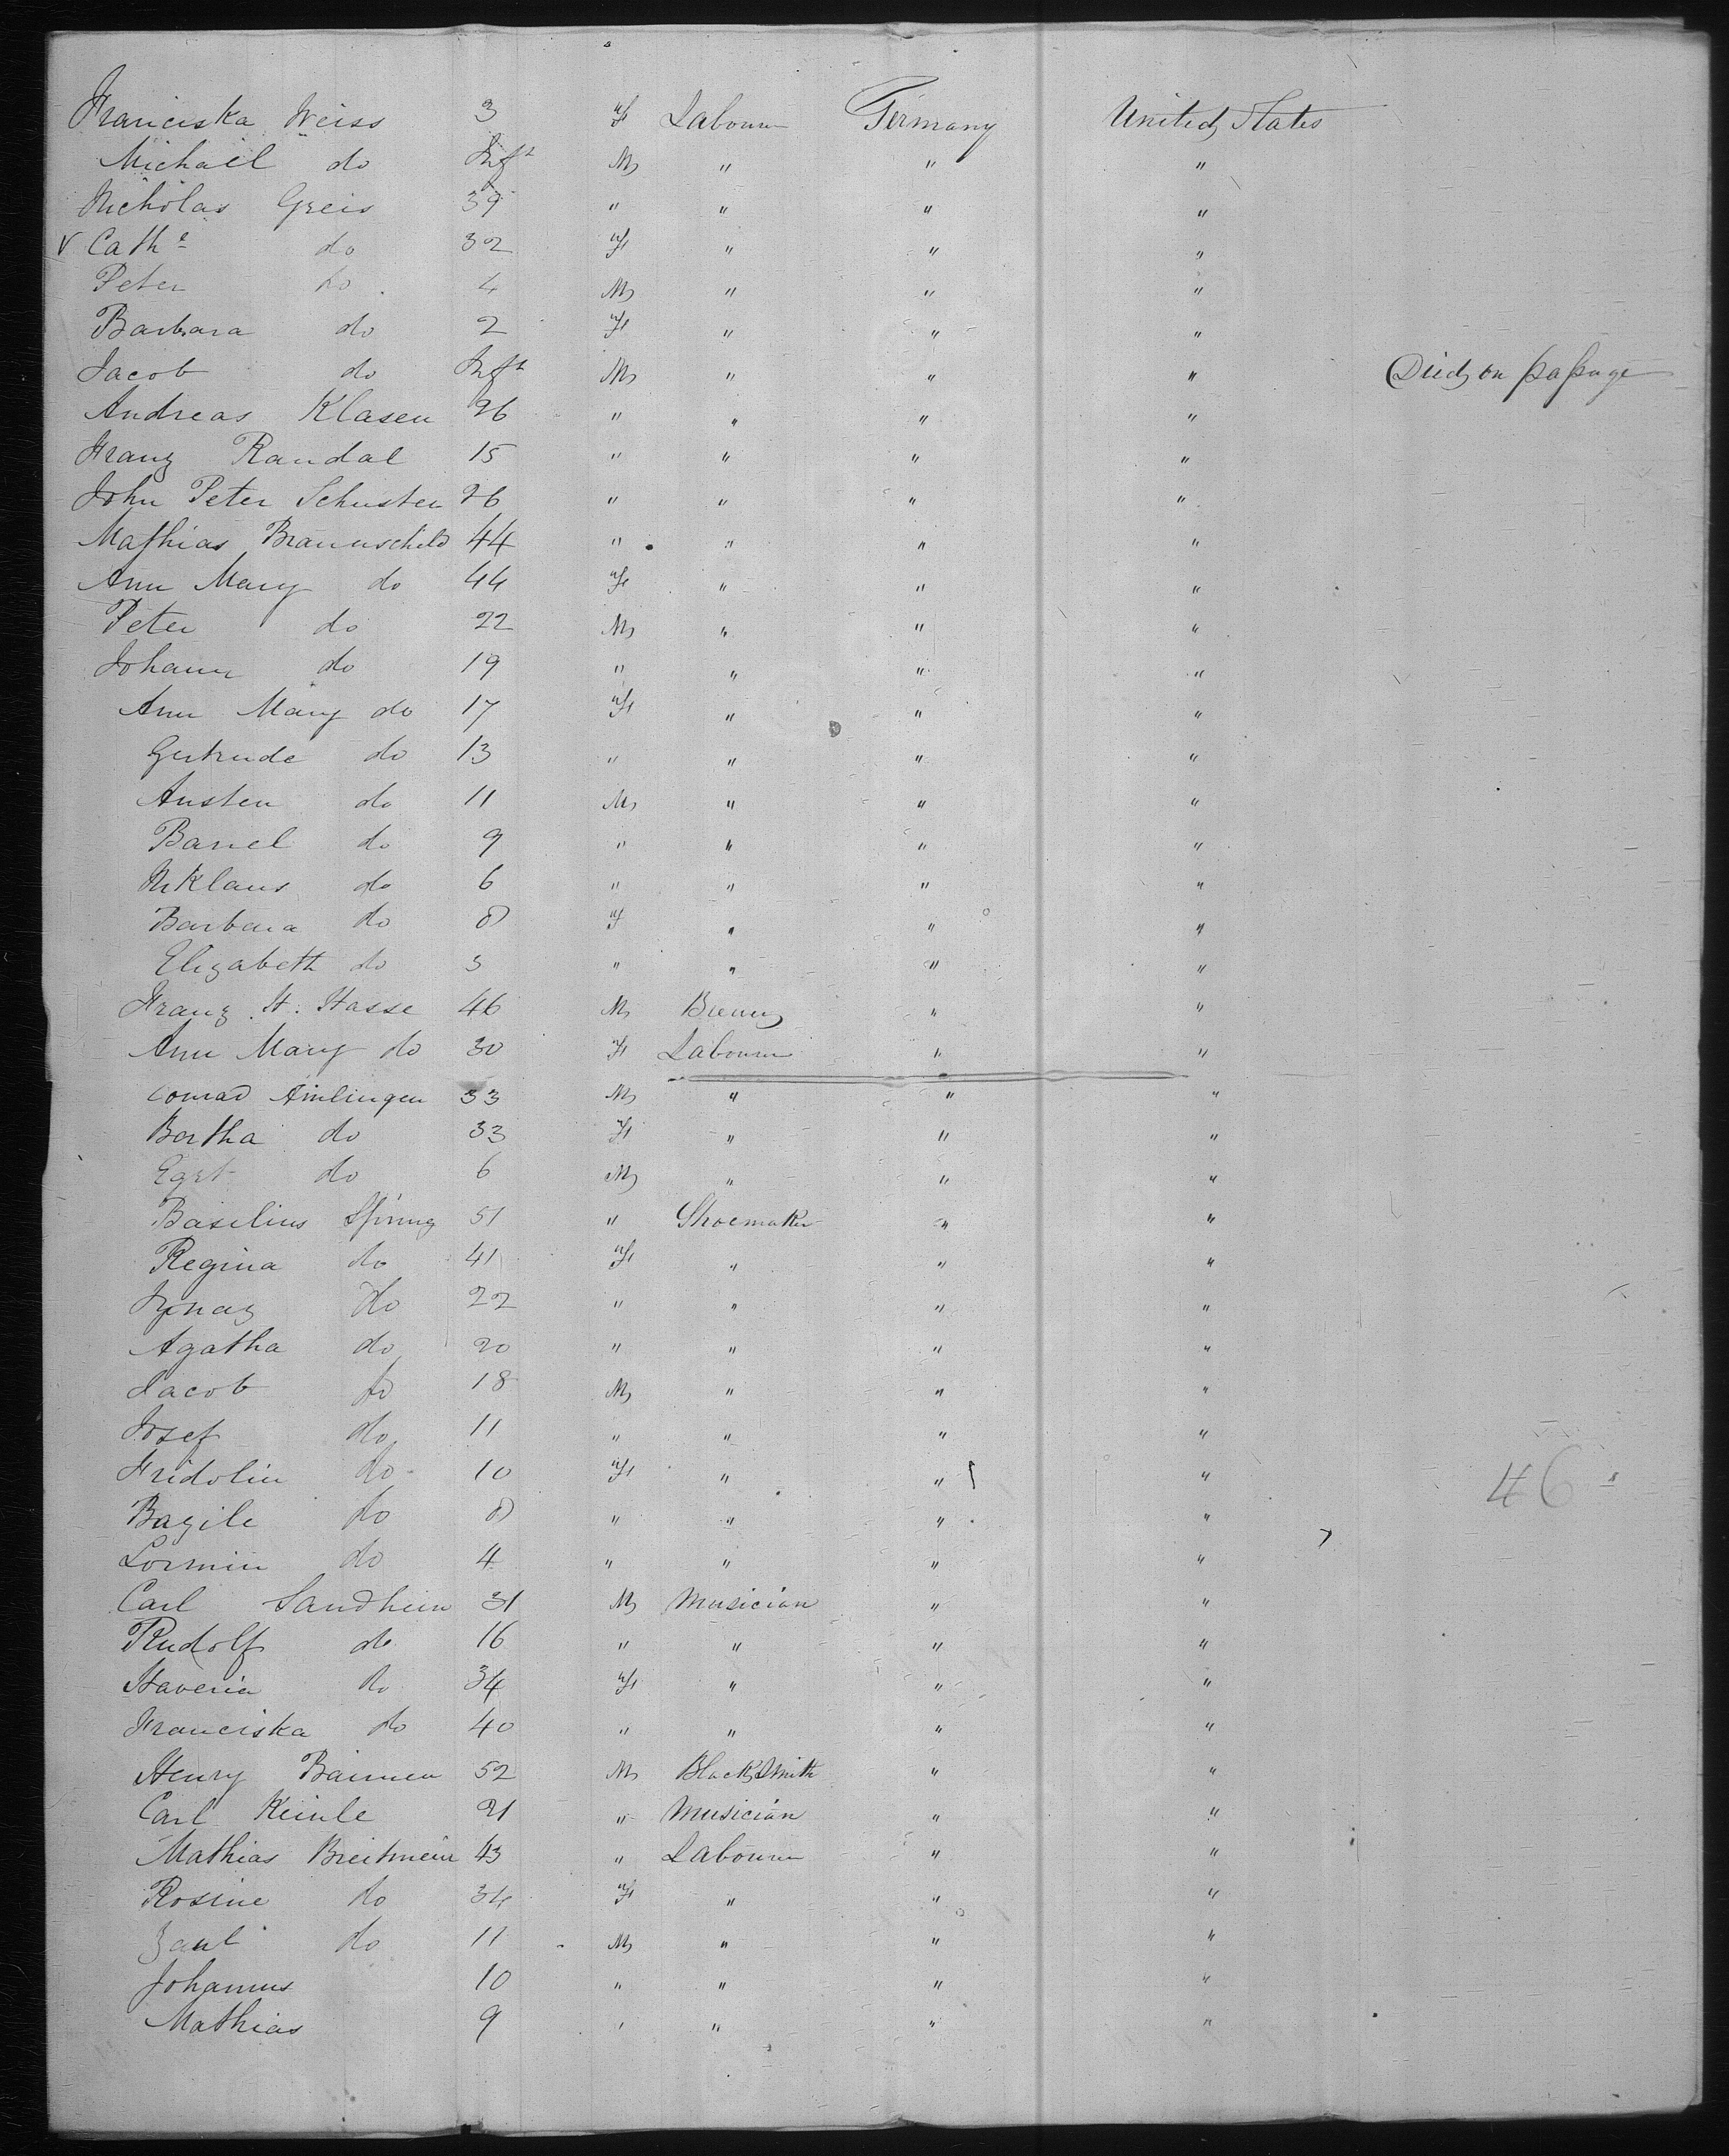 Franciska Weiss 3 F Labourer Germany United States
Michael do Inft M " " "
Nicholas Greis 39 " " " "
V Cathe do 32 F " " "
Peter do 4 M " " "
Barbara do 2 F " " "
Jacob do Inft M " " " Died on passage
Andreas Klasen 26 " " " "
Franz Randal 15 " " " "
John Peter Schuster 26 " " " "
Mathias Braunschild 44 " " " "
Ann Mary do 44 F " " "
Peter do 22 M " " "
Johann do 19 " " " "
Ann Mary do 17 F " " "
Gertrude do 13 " " " "
Austen do 11 M " " "
Barrel do 9 " " " "
Niklaus do 6 " " " "
Barbara do 8 F " " "
Elizabeth do 3 " " " "
Franz H. Hasse 46 M " "
Ann Mary do 30 F Labourer " "
Conrad Amlingen 33 M " " "
Bertha do 33 F " " "
Egrt do 6 M " " "
Basilius Spring 51 " Shoemaker " "
Regina do 41 F " " "
Ignaz do 22 " " " "
Agatha do 20 " " " "
Jacob do 18 M " " "
Josef do 11 " " " "
Fridolin do 10 F " " "
Bazile do 8 " " " " 46
Lormin do 4 " " " "
Carl Sandheim 31 M Musician " "
Rudolf do 16 " " " "
Haveria do 34 F " " "
Franciska do 40 " " " "
Henry Baimen 52 M BlackSmith " "
Carl Keinle 21 " Musician " "
Mathias Breitmeir 43 " Labourer " "
Rosine do 34 F " " "
Zaul do 11 M " " "
Johannus 10 " " " "
Mathias 9 " " " "